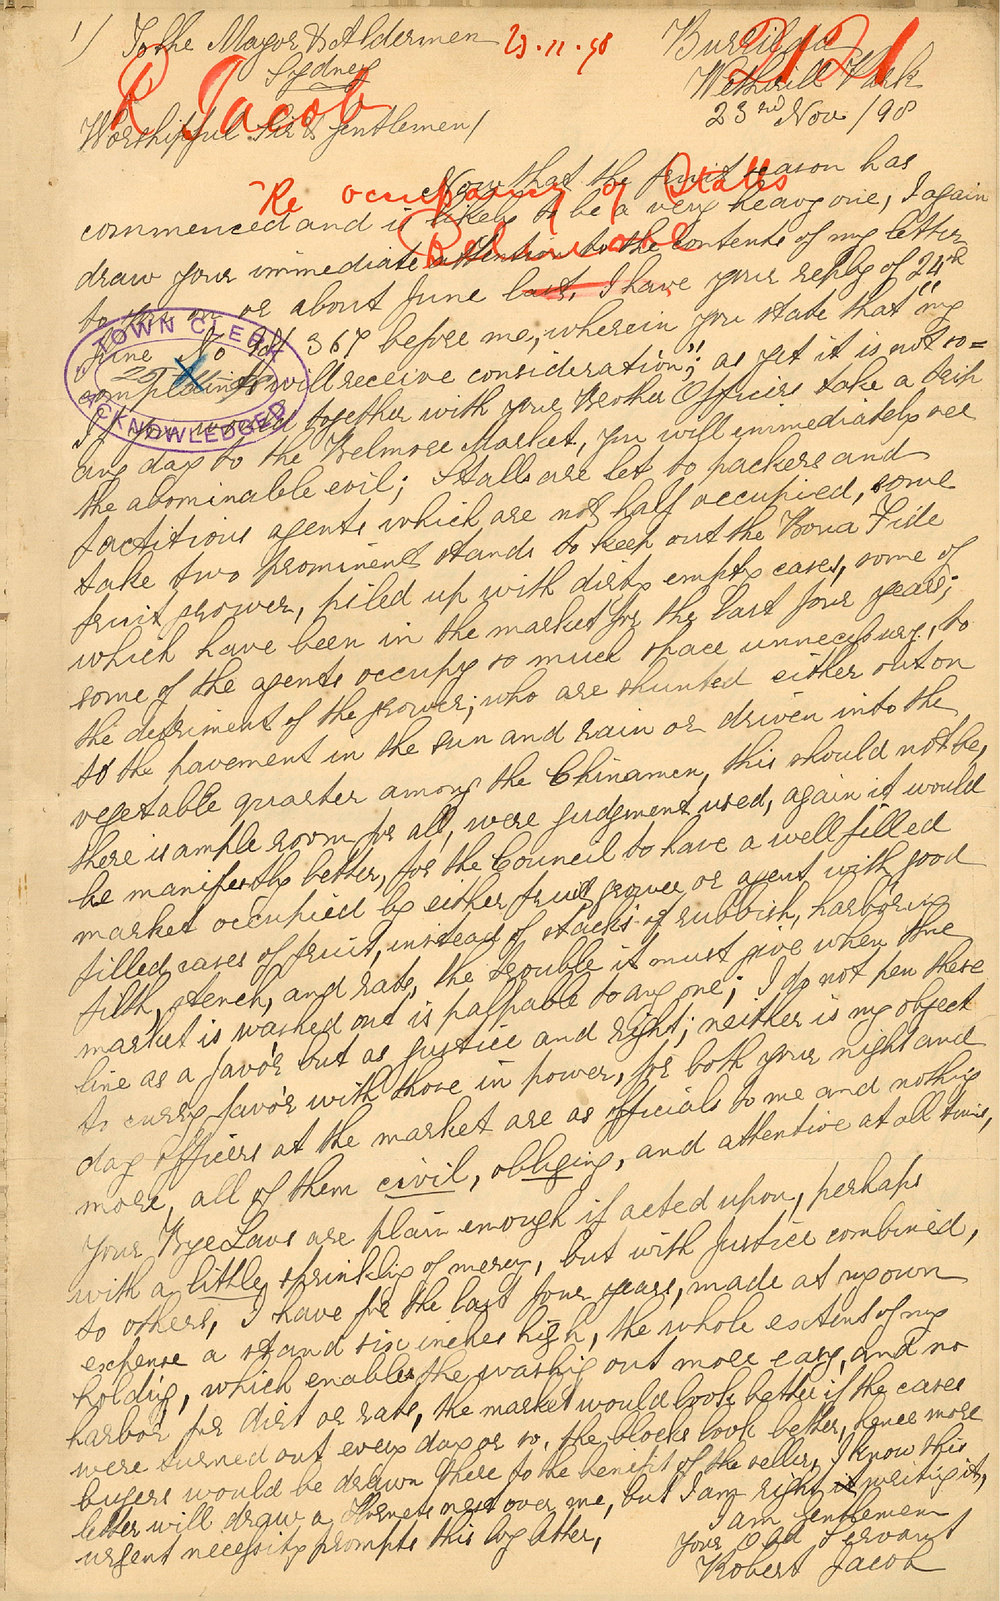 1/ To the Mayor & Aldermen
Sydney
23.11.98
2121
Wetherill Park
23rd Nov /98
R Jacob
Worshipful Sir & Gentlemen/
Re occupancy of Stalls
Belmore
Now that the fruit season has
commenced and is likely to be a very heavy one, I again
draw your immediate attention to the contents of my letter
to this on or about June last, I have your reply of 24th
June No 367 before me, wherein you state that "my
complaints will receive consideration"; as yet it is not so=
TOWN CLERK
ACKNOWLEDGED
If you would together with your Brother Officers take a trip
any day to the Belmore Market, you will immediately see
the abominable evil; Stalls are let to packers and
factitious agents which are not half occupied, some
take two prominent stands to keep out the Bona Fide
fruit grower, piled up with dirty empty cases, some of
which have been in the market for the last four years;
some of the agents occupy so much space unnecessary, to
the detriment of the grower; who are shunted either out on
to the pavement in the sun and rain or driven into the
vegetable quarter among the Chinamen, this should not be,
there is ample room for all, were judgment used, again it would
be manifestly better, for the Council to have a well filled
market occupied by either fruit grower or agent with good
filled cases of fruit, instead of stacks of rubbish, harboring
filth, stench, and rats, the trouble it must give when the
market is washed out is palpable to any one; I do not pen these
line as a favor but as justice and right; neither is my object
to curry favor with those in power, for both your night and
day officers at the market are as officials to me and nothing
more, all of them civil, obliging, and attentive at all times,
Your Bye Laws are plain enough if acted upon, perhaps
with a little sprinkling of mercy, but with Justice combined,
to others, I have for the last four years, made at my own
expense a stand six inches high, the whole extent of my
holding, which enables the washing out more easy, and no
harbor for dirt or rats, the market would look better if the cases
were turned out every day or so, the blocks look better, hence more
buyers would be drawn there to the benefit of the seller, I know this
letter will draw a Hornets nest over me, but I am right in writing it,
urgent necessity prompts this by letter,
I am Gentlemen
Your Obd Servant
Robert Jacob